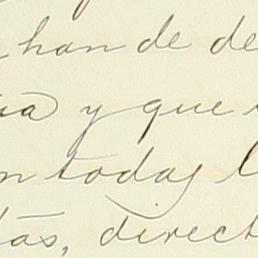 han de de
ia y que
n todas l
tas, direct